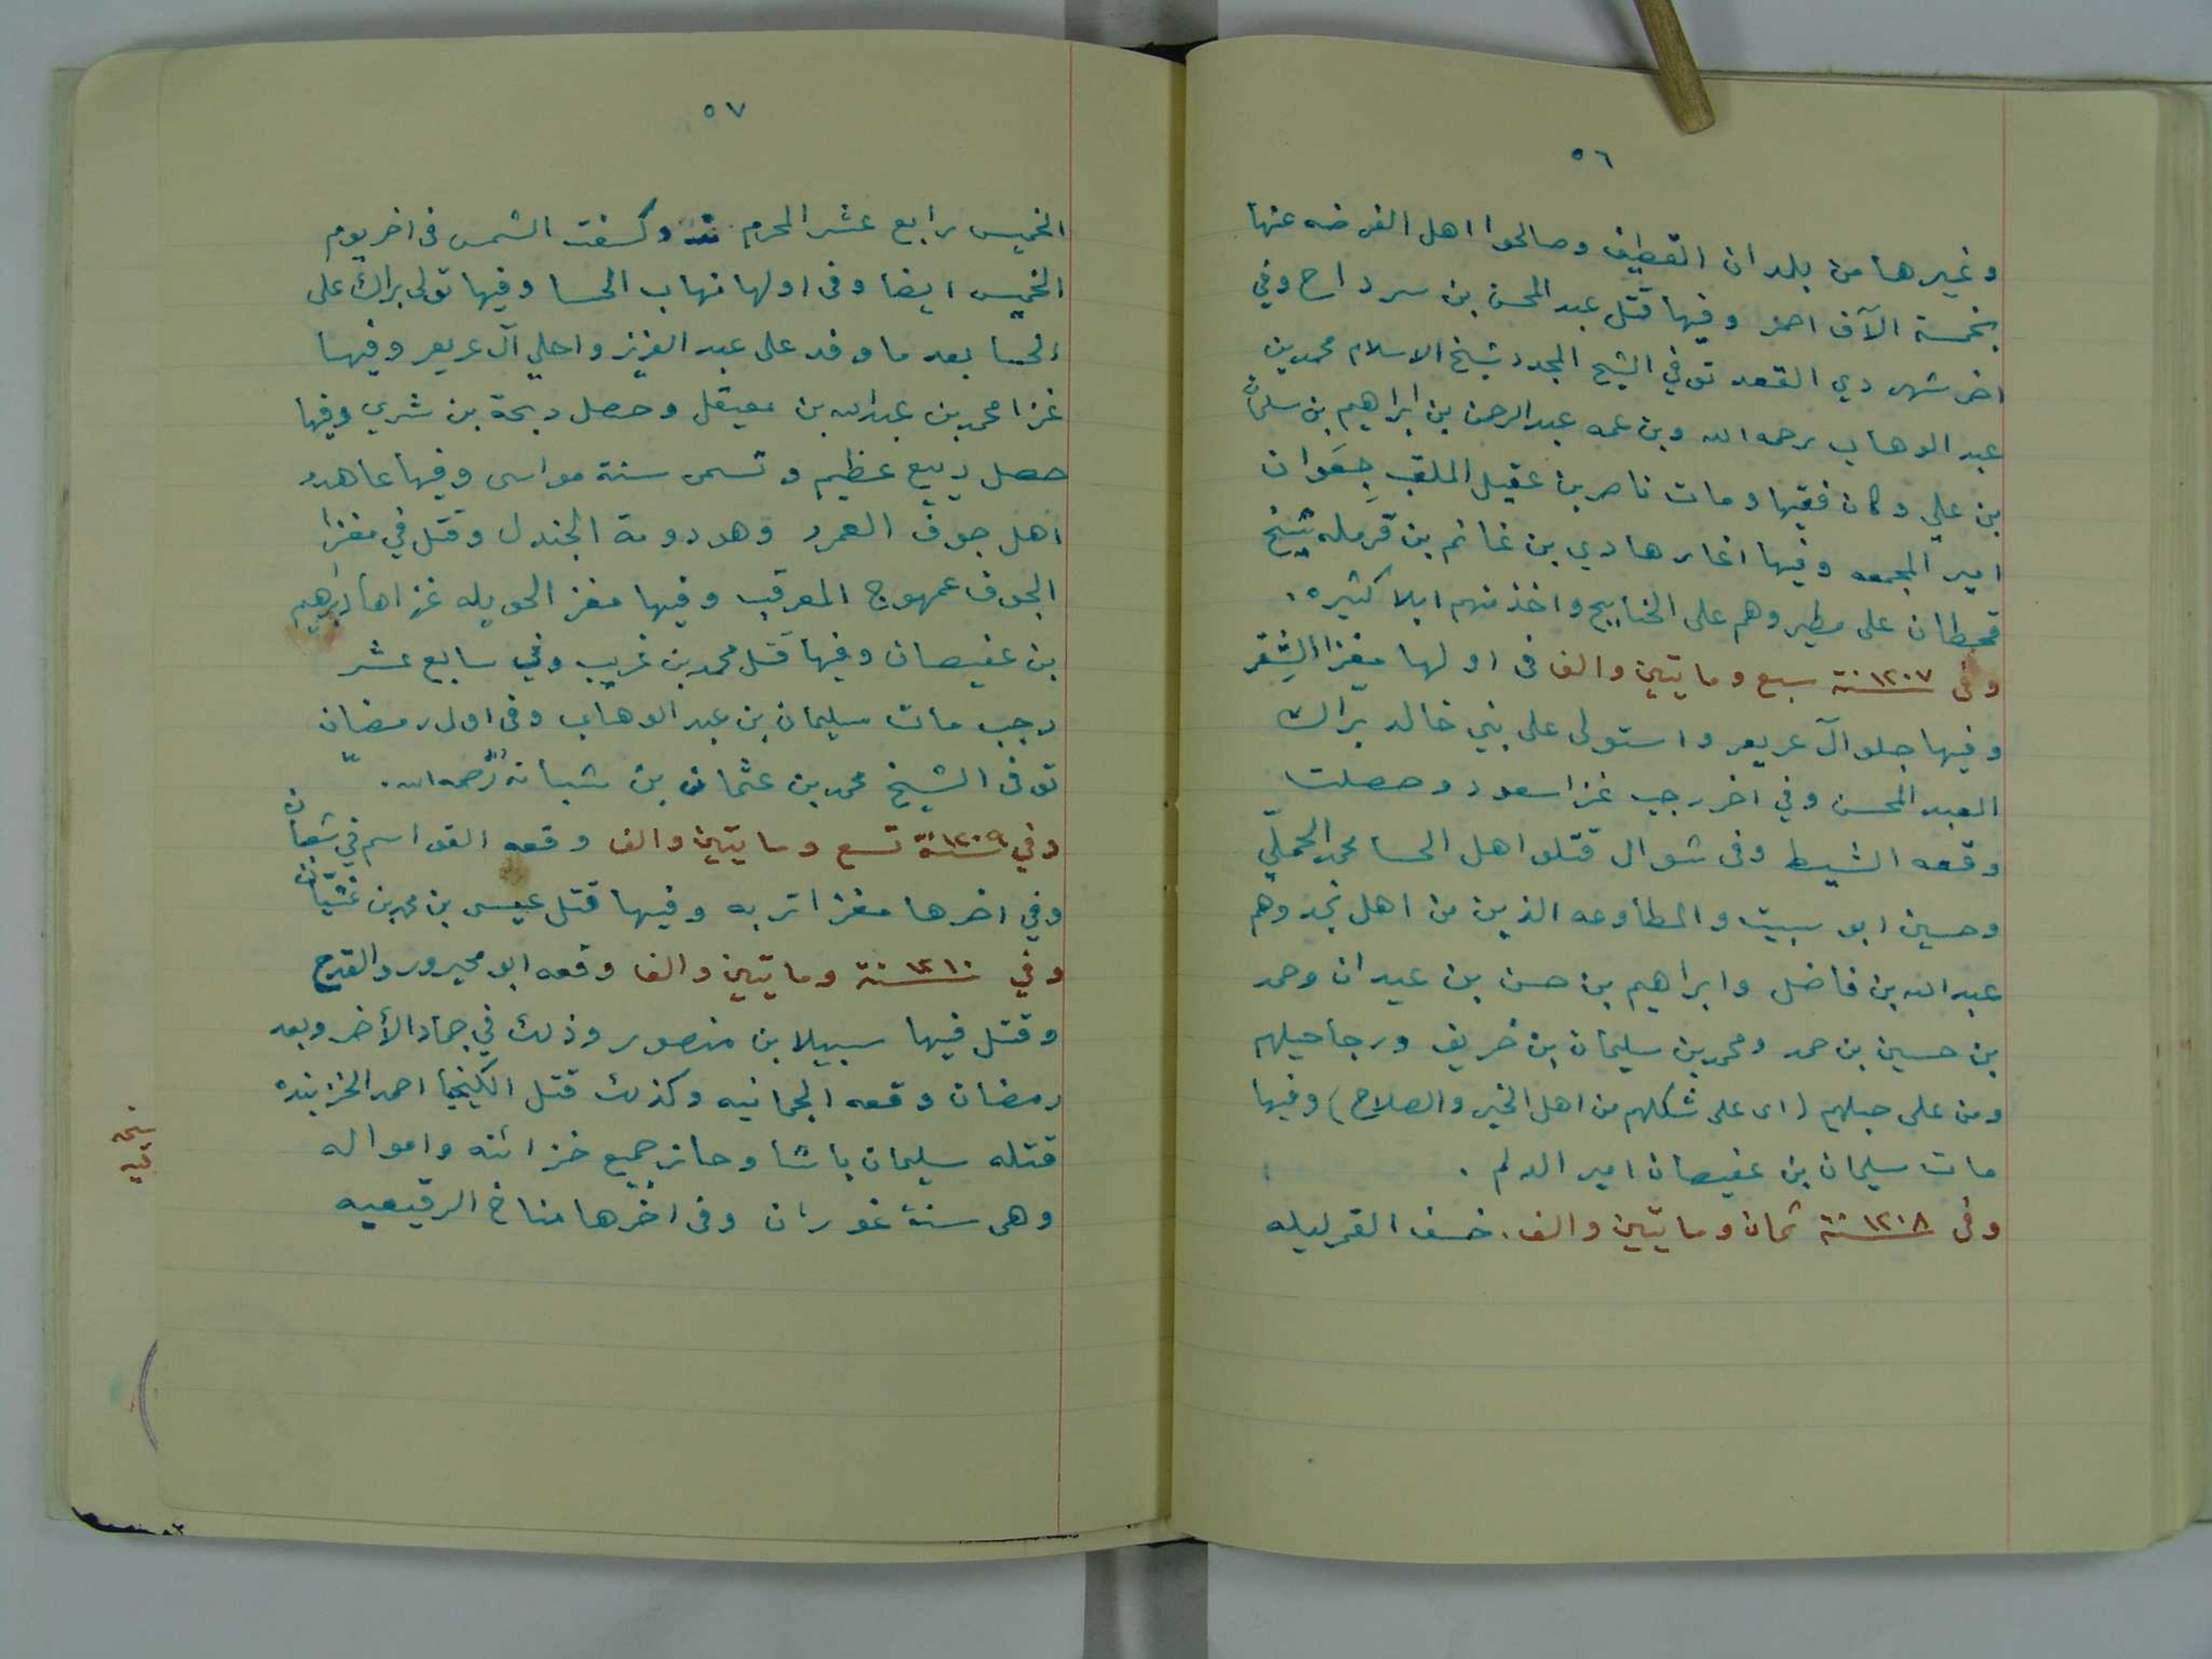 ٥٦
وغيرها من بلدان القطيف وصالحوا اهل الفرضه عنها
بخمسة الآف احمر وفيها قتل عبد المحسن بن سرداح وفي
اخر شهر دي القعد توفي الشيخ المجدد شيخ الاسلام محمد بن
عبد الوهاب رحمه الله وبن عمه عبد الرحمن بن ابراهيم بن سليمان
بن علي وكان فقيها ومات ناصر بن عقيل الملقب جعوان
امير المجمعه وفيها اغار هادي بن غانم بن قرمله شيخ
قحطان على مطير وهم على الخنابيج واخذ منهم ابلا كثيره.
وفى ١٢٠٧ سنة سبع ومايتين والف فى اولها مغزا الشقر
وفيها جلو آل عريعر واستولى على بني خالد براك
العبد المحسن وفي اخر رجب غزا سعود وحصلت
وقعه الشيط وفى شوال قتلو اهل الحسا محمد الحملي
وحسين ابو سبيت والمطاوعه الذين من اهل نجد وهم
عبد الله بن فاضل وابراهيم بن حسن بن عيدان وحمد
بن حسين بن حمد ومحمد بن سليمان بن خريف ورجاجيلهم
ومن على جبلهم (اى على شكلهم من اهل الخير والصلاح) وفيها
مات سليمان بن عفيصان امير الدلم .
وفى ١٢٠٨ سنة ثمان ومايتين والف. خسف القمر ليله
٥٧
الخميس رابع عشر المحرم وكسفت الشمس فى اخر يوم
الخميس ايضا وفى اولها نهاب الحسا وفيها تولى براك على
الحسا بعد ما وفد على عبد العزيز واجلي آل عريعر وفيها
غزا محمد بن عبدالله بن معيقل وحصل دبحة بن شري وفيها
حصل ربيع عظيم وتسمى سنة مواسى وفيها عاهدو
اهل جوف العمرد وهو دومة الجندل وقتل في مغزا
الجوف عمهوج المعرقب وفيها مغز الحويله غزاها ابراهيم
بن عفيصان وفيها قتل محمد بن غريب وفي سابع عشر
رجب مات سليمان بن عبد الوهاب وفى اول رمضان
توفى الشيخ محمد بن عثمان بن شبانه رحمه الله.
وفي ١٢٠٩ سنة تسع ومايتين والف وقعه القواسم في شعبان
وفي اخرها مغزا تربه وفيها قتل عيسى بن محمد بن غشيان
وفي ١٢١٠ سنة ومايتين والف وقعه ابو محيرور والقرح
وقتل فيها سبيلا بن منصور وذلك في جماد الأخر وبعد
رمضان وقعه الجمانيه وكذلك قتل الكيخيا احمد الخزينده
قتله سليمان باشا وحاز جميع خزائنه وامواله
وهى سنة غوران وفى اخرها مناخ الرقيعيه